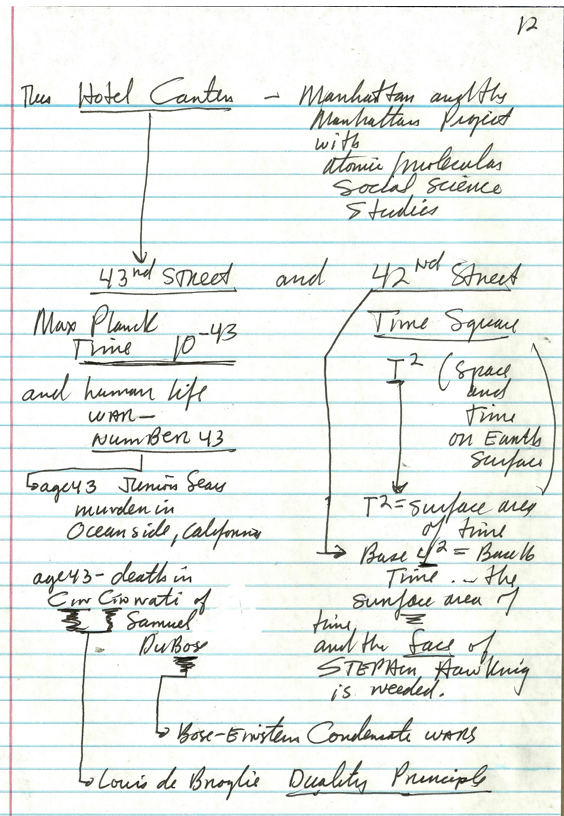 12
This Hotel Carter – Manhattan and the
Manhattan Project
with
atomic/molecular
Social Science
Studies
43nd Street and 42nd Street
Max Planck
Time 10-43
and human life
WAR–
Number 43
age 43 Junior Seau
murder in
Oceanside, California
age 43 – death in
Cin Cinnati of
Samuel
DuBose
Time Square
T2 (Space
and
Time
on Earth
Surface
T2 = Surface area
of time
Base 42 = Base 16
Time ... the
surface area of
time,
and the face of
STEPHEN Hawking
is needed.
Bose-Einstein Condensate WARS
Louis de Broglie Duality Principle